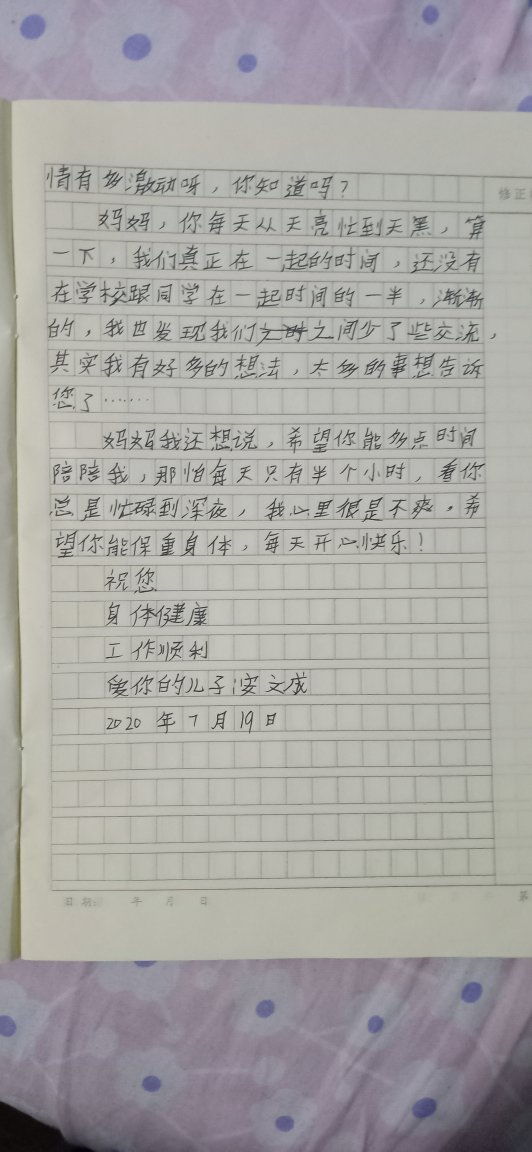 情有多激动呀，你知道吗？
修正
妈妈，你每天从天亮忙到天黑，算
一下，我们真正在一起的时间，还没有
在学校跟同学在一起时间的一半，渐渐
的，我也发现我们之间少了些交流，
其实我有好多的想法，太多的事想告诉
您了……
妈妈我还想说，希望你能多点时间
陪陪我，那怕每天只有半个小时，看你
总是忙碌到深夜，我心里很是不爽。希
望你能保重身体，每天开心快乐！
祝您
身体健康
工作顺利
爱你的儿子文成
2020年7月19日
日期： 年 月 日
第